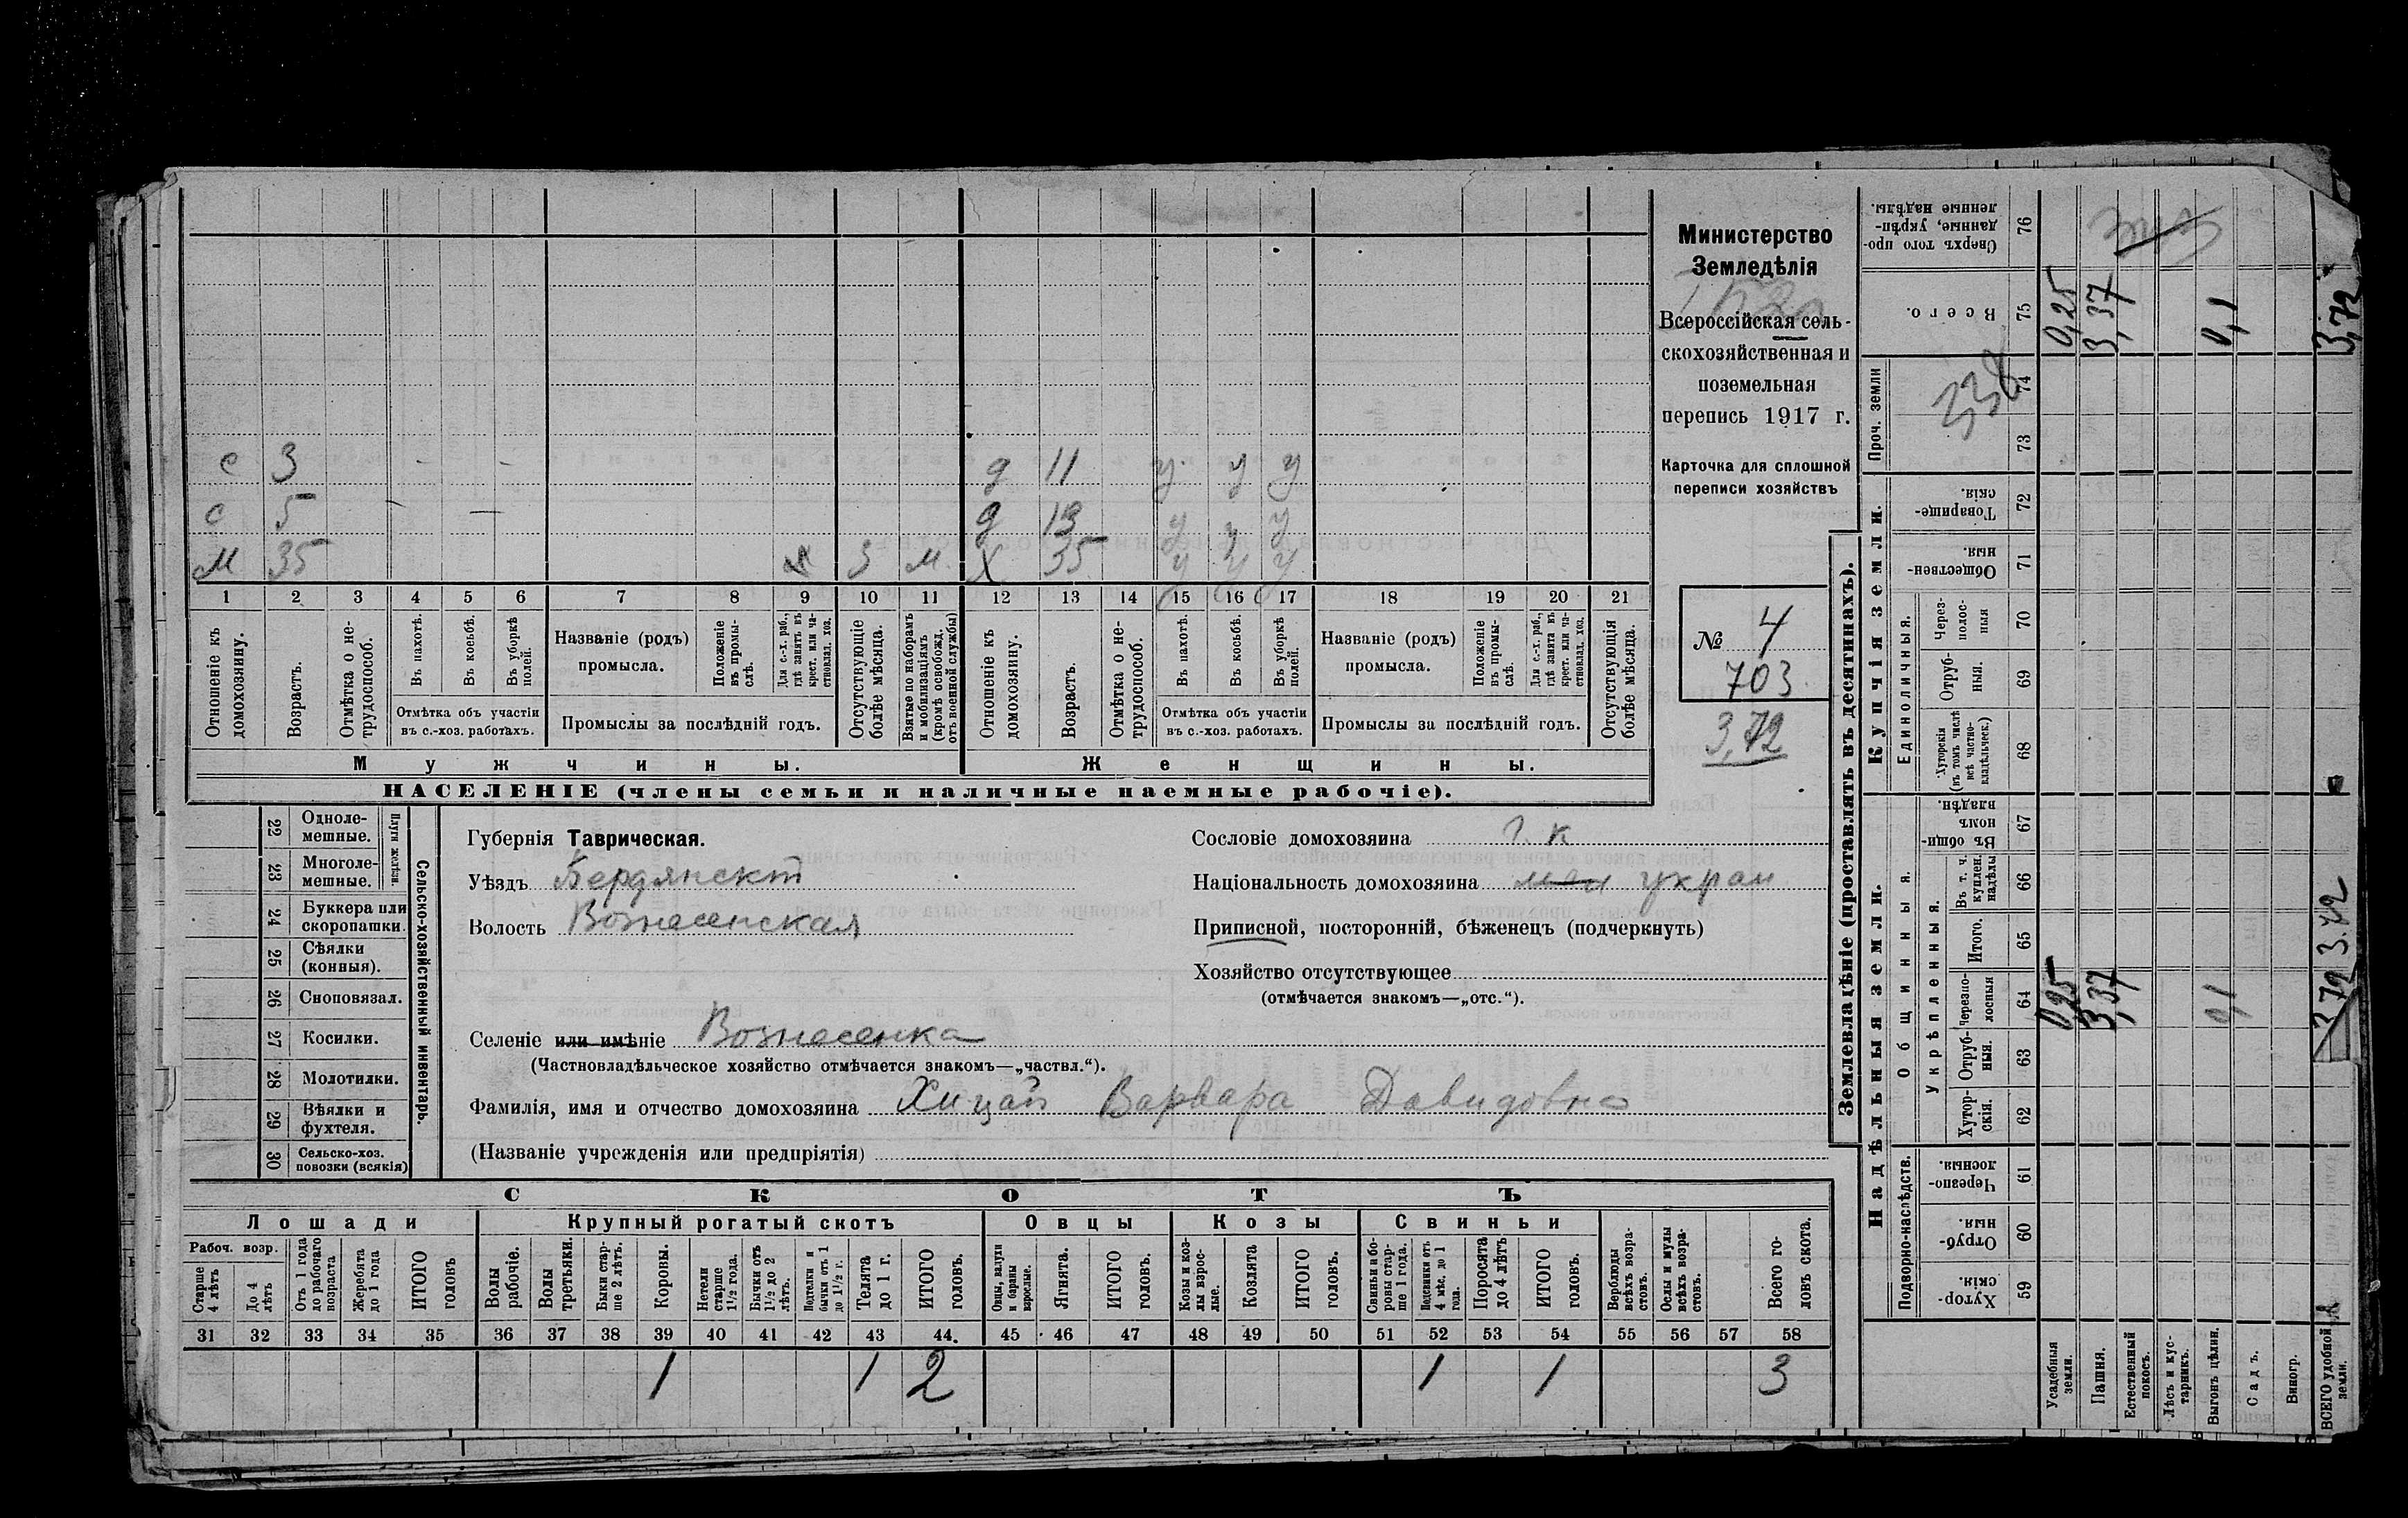 Министерство
Земледѣлія
Всероссійская сель-
скохозяйственная и
поземельная
перепись 1917 г.
Карточка для сплошной
переписи хозяйствъ
№ 4
703
3,72
с 3 д 11 у у у
с 5 д 13 у у у
м 35 х 3 м Х 35 у у у
1 2 3 4 5 6 7 8 9 10 11 12 13 14 15 16 17 18 19 20 21
Отношеніе къ домохозяину.
Возрастъ.
Отмѣтка о не-трудоспособ.
Въ пахотѣ.
Въ косьбѣ.
Въ уборкѣ полей.
Отмѣтка объ участіи въ с.-хоз. работахъ.
Названіе (родъ) промысла.
Положеніе въ промы-слѣ.
Для с.-х. раб., гдѣ занятъ въ крест. или ча-стновлад. хоз.
Промыслы за послѣдній годъ.
Отсутствующіе болѣе мѣсяца.
Взятые по наборамъ и мобилизаціямъ (кромѣ освобожд. отъ военной службы)
Отношеніе къ домохозяину.
Возрастъ.
Отмѣтка о не-трудоспособ.
Въ пахотѣ.
Въ косьбѣ.
Въ уборкѣ полей.
Отмѣтка объ участіи въ с.-хоз. работахъ.
Названіе (родъ) промысла.
Положеніе въ промы-слѣ.
Для с.-х. раб., гдѣ занята въ крест. или ча-стновлад. хоз.
Промыслы за послѣдній годъ.
Отсутствующія болѣе мѣсяца.
Мужчины. Женщины.
НАСЕЛЕНІЕ (члены семьи и наличные наемные рабочіе).
Сельско-хозяйственный инвентарь.
Плуги желѣзн.
22 Одноле-мешные.
23 Многоле-мешные.
24 Буккера или скоропашки.
25 Сѣялки (конныя).
26 Сноповязал.
27 Косилки.
28 Молотилки.
29 Вѣялки и фухтеля.
30 Сельско-хоз. повозки (всякія)
Губернія Таврическая.
Уѣздъ Бердянскій
Волость Вознесенская
Селеніе или имѣніе Вознесенка
(Частновладѣльческое хозяйство отмѣчается знакомъ—„частвл.“).
Фамилія, имя и отчество домохозяина Хицай Варвара Давидовна
(Названіе учрежденія или предпріятія)
Сословіе домохозяина к
Національность домохозяина украи
Приписной, посторонній, бѣженецъ (подчеркнуть)
Хозяйство отсутствующее
(отмѣчается знакомъ—„отс.“).
СКОТЪ
Лошади Крупный рогатый скотъ Овцы Козы Свиньи
Рабоч. возр.
Старше 4 лѣтъ
До 4 лѣтъ
Отъ 1 года до рабочаго возраста
Жеребята до 1 года
ИТОГО головъ
Волы рабочіе.
Волы третьяки.
Быки стар-ше 2 лѣтъ.
Коровы.
Нетели старше 1½ года.
Бычки отъ 1½ до 2 лѣтъ.
Подтелки и бычки отъ 1 до 1½ г.
Телята до 1 г.
ИТОГО головъ.
Овцы, валухи и бараны взрослые.
Ягнята.
ИТОГО головъ.
Козы и коз-лы взрос-лые.
Козлята
ИТОГО головъ.
Свиньи и бо-ровы стар-ше 1 года.
Подсвинки отъ 4 мѣс. до 1 года.
Поросята до 4 лѣтъ
ИТОГО головъ.
Верблюды всѣхъ возра-стовъ.
Ослы и мулы всѣхъ возра-стовъ.
Всего го-ловъ скота.
31 32 33 34 35 36 37 38 39 40 41 42 43 44. 45 46 47 48 49 50 51 52 53 54 55 56 57 58
1 1 2 1 1 3
Землевладѣніе (проставлять въ десятинахъ).
Надѣльныя земли.
Купчія земли.
Проч. земли
Подворно-наслѣдств.
Общинныя.
Укрѣпленныя.
Единоличныя.
Хутор-скія. 59
Отруб-ныя. 60
Черезпо-лосныя. 61
Хутор-скія. 62
Отруб-ныя. 63
Черезпо-лосныя 64
Итого. 65
Въ т. ч. куплен. надѣлы 66
Въ общи-номъ владѣн. 67
Хуторскія (въ томъ числѣ всѣ частно-владѣльческ.) 68
Отруб-ныя. 69
Через-полос-ныя 70
Обществен-ныя. 71
Товарище-скія. 72
73
74
Всего. 75
Сверхъ того про-данные, укрѣп-ленные надѣлы. 76
Усадебныя земли. 0,25 0,25
Пашня. 3,37 3,37
Естественный покосъ.
Лѣсъ и кус-тарникъ.
Выгонъ цѣлин. 0,1 0,1
Садъ.
Виногр.
ВСЕГО удобной земли. 3,72 3,72 3,72